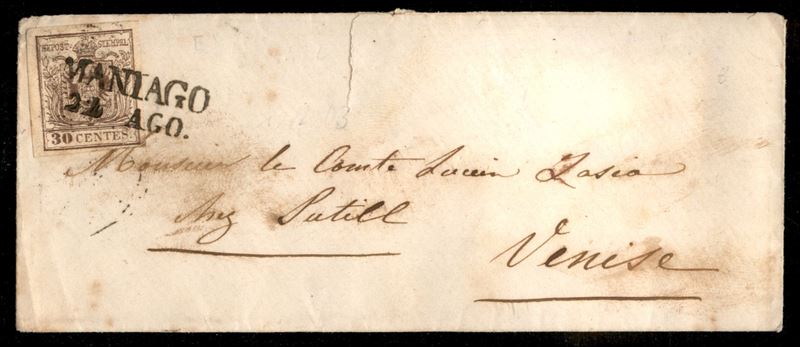 KKPOST-STEMPEL
MANIAGO
24 AGO.
30 CENTES.
Monsieur le Comte Lucien Zasio
chez
Venise